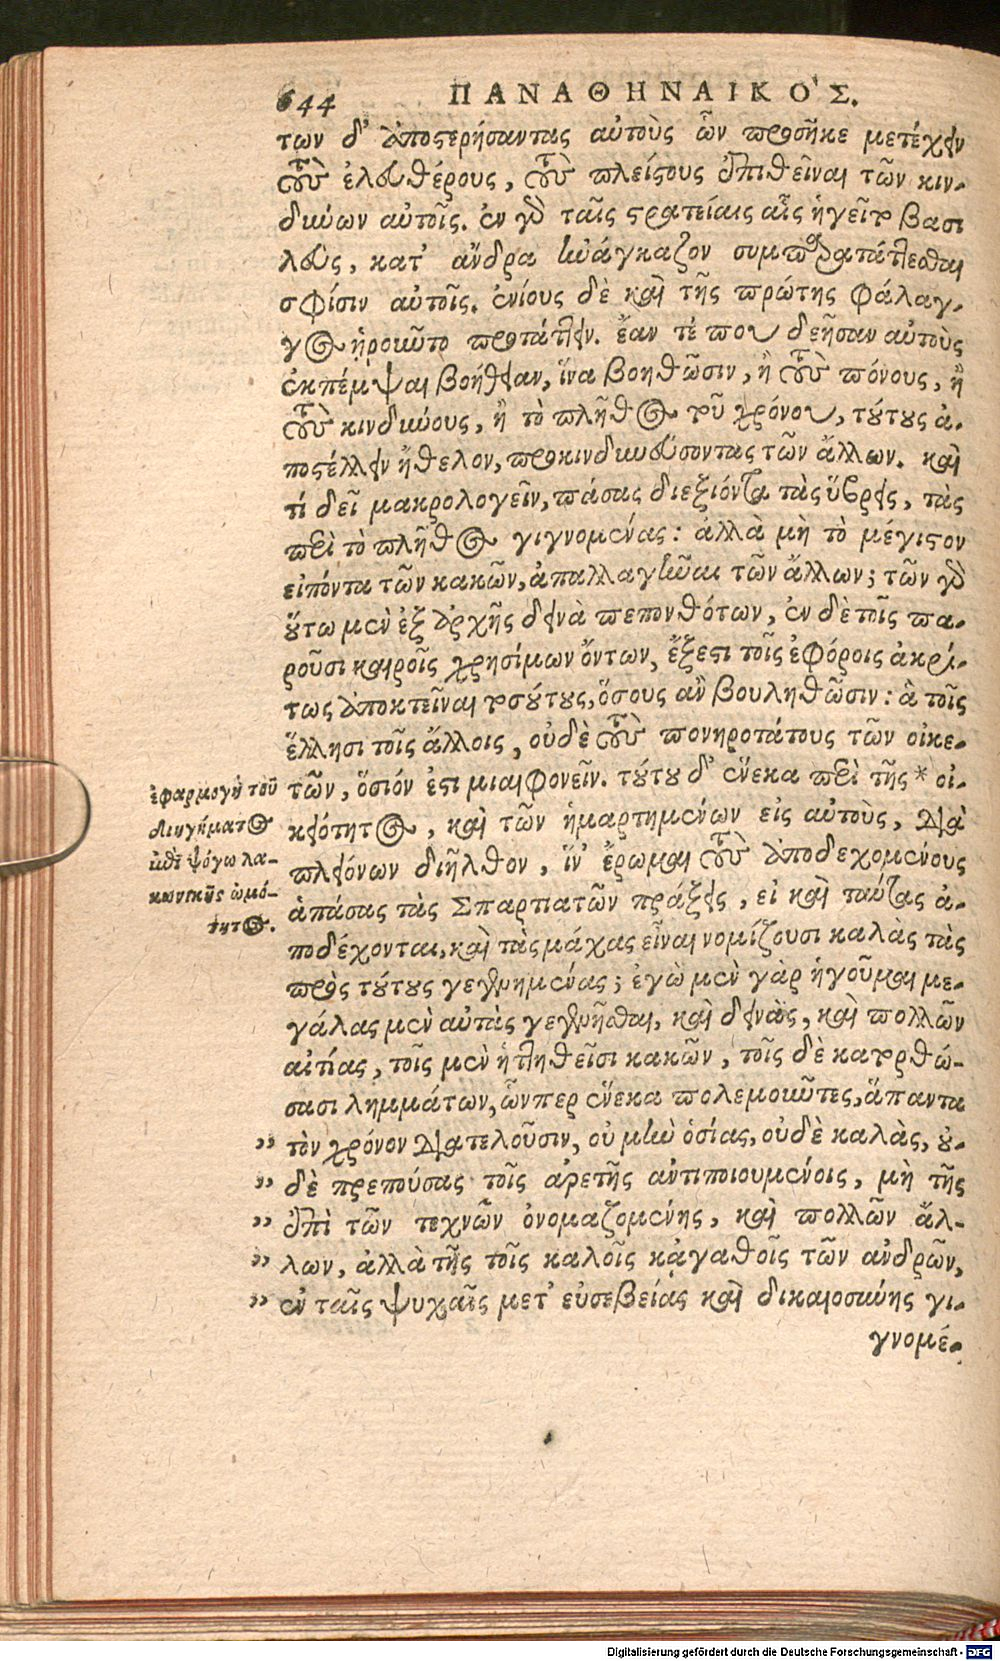 644 ΠΑΝΑΘΗΝΑΙΚΟ'Σ.
των δ' ἀποστερήσαντας αὐτοὺς ὧν προσῆκε μετέχειν
τοὺς ἐλευθέρους, τοὺς πλείστους ἐπιθεῖναι τῶν κιν-
δύνων αὐτοῖς. ἐν γὰρ ταῖς στρατείαις αἷς ἡγεῖτο βασι
λεὺς, κατ' ἄνδρα ἠνάγκαζον συμπαρατάττεσθαι
σφίσιν αὐτοῖς. ἐνίους δὲ καὶ τῆς πρώτης φάλαγ-
γος ἠροιῶτο προτάττειν. ἔαν τέ που δεῆσαν αὐτοὺς
ἐκπέμψαι βοήθειαν, ἵνα βοηθῶσιν, ἢ τοὺς πόνους, ἢ
τοὺς κινδύνους, ἢ τὸ πλῆθος τοῦ χρόνου, τούτους ἀ-
ποστέλλειν ἤθελον, προκινδυνεύσοντας τῶν ἄλλων. καὶ
τί δεῖ μακρολογεῖν, πάσας διεξιόντα τὰς ὕβρεις, τὰς
περὶ τὸ πλῆθος γιγνομένας: ἀλλὰ μὴ τὸ μέγιστον
εἰπόντα τῶν κακῶν, ἀπαλλαγῆναι τῶν ἄλλων; τῶν γὰρ
οὕτω μὲν ἐξ ἀρχῆς δεινὰ πεπονθότων, ἐν δὲ τοῖς πα-
ροῦσι καιροῖς χρησίμων ὄντων, ἔξεστι τοῖς ἐφόροις ἀκρί-
τως ἀποκτεῖναι τοσούτους, ὅσους ἂν βουληθῶσιν: ἃ τοῖς
ἕλλησι τοῖς ἄλλοις, οὐδὲ τοὺς πονηροτάτους τῶν οἰκε-
τῶν, ὅσιόν ἐστι μιαιφονεῖν. τούτου δ' ἕνεκα περὶ τῆς * οἰ-
κειότητος, καὶ τῶν ἡμαρτημένων εἰς αὐτοὺς, διὰ
πλειόνων διῆλθον, ἵν' ἔρωμαι τοὺς ἀποδεχομένους
ἁπάσας τὰς Σπαρτιατῶν πράξεις, εἰ καὶ ταύτας ἀ-
ποδέχονται, καὶ τὰς μάχας εἶναι νομίζουσι καλὰς τὰς
πρὸς τούτους γεγενημένας; ἐγὼ μὲν γὰρ ἡγοῦμαι με-
γάλας μὲν αὐτὰς γεγενῆσθαι, καὶ δεινὰς, καὶ πολλῶν
αἰτίας, τοῖς μὲν ἡττηθεῖσι κακῶν, τοῖς δὲ κατορθώ-
σασι λημμάτων, ὧνπερ ἕνεκα πολεμοῦντες, ἅπαντα
" τὸν χρόνον διατελοῦσιν, οὐ μὴν ὁσίας, οὐδὲ καλὰς, οὐ-
" δὲ πρεπούσας τοῖς ἀρετῆς ἀντιποιουμένοις, μὴ τῆς
" ἐπὶ τῶν τεχνῶν ὀνομαζομένης, καὶ πολλῶν ἄλ-
" λων, ἀλλὰ τῆς τοῖς καλοῖς κἀγαθοῖς τῶν ἀνδρῶν,
" ἐν ταῖς ψυχαῖς μετ' εὐσεβείας καὶ δικαιοσύνης γι-
γνομέ-
ἐφαρμογὴ τοῦ
διηγήματος
ἐπὶ ψόγω λα-
κωνικῆς ὠμό-
τητος.
Digitalisierung gefördert durch die Deutsche Forschungsgemeinschaft - DFG